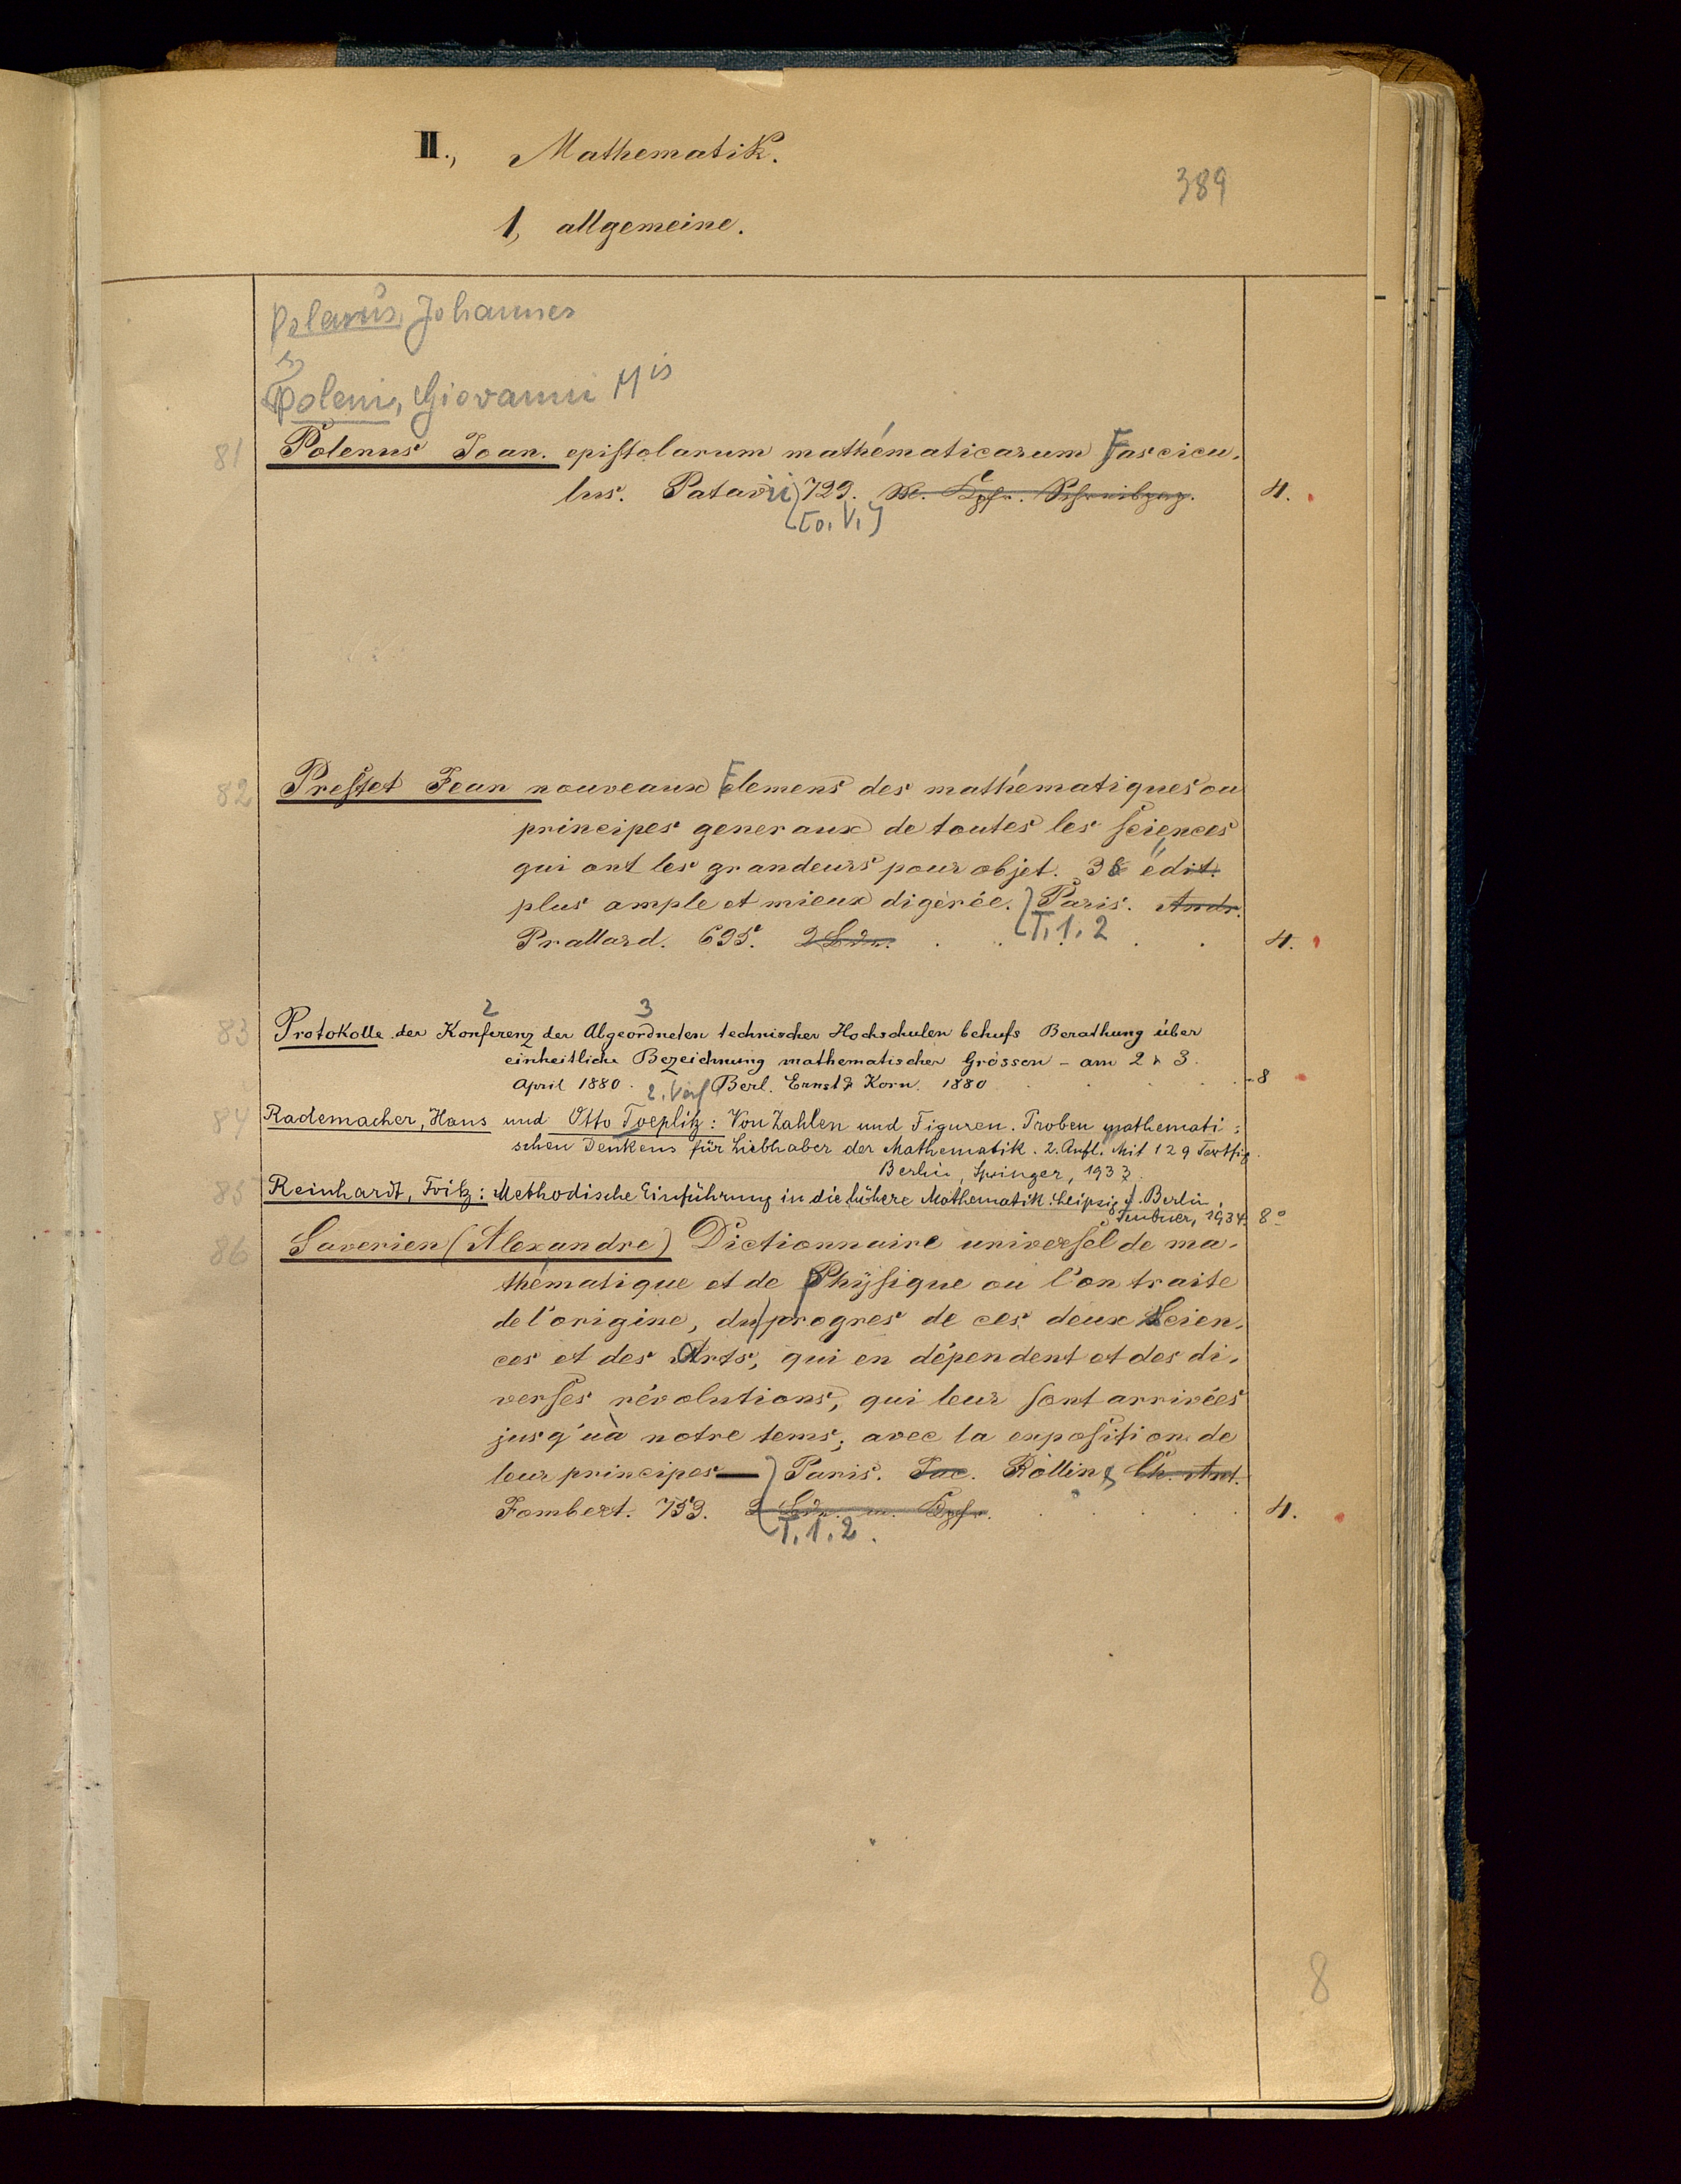 II., Mathematik.
389
1, allgemeine.
Polenus, Johannes
s.
Poleni, Giovanni Mis
81 Polenus Joan. epistolarum mathématicarum Fascicu-
lus. Patavii 729. 4.
[o. V.]
82 Prestet Jean nouveaux Elemens des mathématiques ou
principes generaux de toutes les sciences
qui ont les grandeurs pour objet. 3e édit.
plus ample et mieux digérée. Paris. Andr.
Prallard. 695. 2 Bde. T. 1. 2 4.
2 3
83 Protokolle der Konferenz der Abgeordneten technischer Hochschulen behufs Berathung über
einheitliche Bezeichnung mathematischer Grössen - am 2 & 3.
April 1880. Berl. Ernst & Korn. 1880 8
2. Verf
84 Rademacher, Hans und Otto Toeplitz: Von Zahlen und Figuren. Proben mathemati:
schen Denkens für Liebhaber der Mathematik. 2. Aufl. Mit 129 Textfig.
Berlin, Springer, 1933.
85 Reinhardt, Fritz: Methodische Einführung in die höhere Mathematik. Leipzig u. Berlin,
Teubner, 1934. 8°
86 Saverien (Alexandre) Dictionnaire universel de ma-
thématique et de Physique ou l'on traite
de l'origine, du progres de ces deux Scien-
ces et des Arts, qui en dépendent et des di-
verses révolutions, qui leur sont arrivées
jusq'uà notre tems, avec la exposition de
leur principes — Paris. Jac. Rollin & Ch. Ant.
Jombert. 753. 2 Bde. m. Kpfr. 4.
T. 1. 2.
8